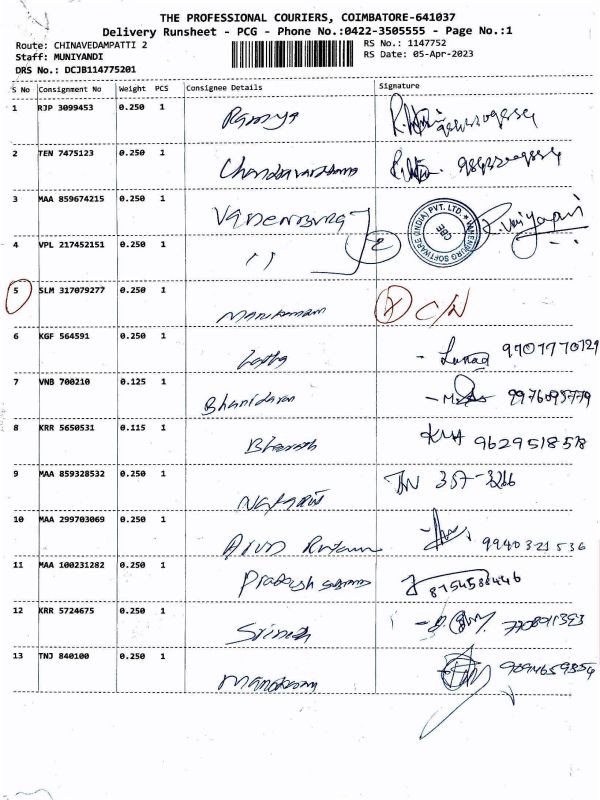 THE PROFESSIONAL COURIERS, COIMBATORE-641037
Delivery Runsheet - PCG - Phone No.:0422-3505555 - Page No.:1
Route: CHINAVEDAMPATTI 2 RS No.: 1147752
Staff: MUNIYANDI RS Date: 05-Apr-2023
DRS No.: DCJB114775201
S No Consignment No Weight PCS Consignee Details Signature
1 RJP 3099453 0.250 1 Ramya
2 TEN 7475123 0.250 1
3 MAA 859674215 0.250 1 VANENBURG
VANENBURG SOFTWARE (INDIA) PVT. LTD. CBE
4 VPL 217452151 0.250 1 11 2
5 SLM 317079277 0.250 1 C/N
6 KGF 564591 0.250 1 Latha
7 VNB 700210 0.125 1 Bhanidaran 9976095779
8 KRR 5650531 0.115 1 Bharath 9629518518
9 MAA 859328532 0.250 1 357-3266
10 MAA 299703069 0.250 1 Arun 9940321536
11 MAA 100231282 0.250 1 Prakash 8754586446
12 KRR 5724675 0.250 1
13 TNJ 840100 0.250 1 9094659354